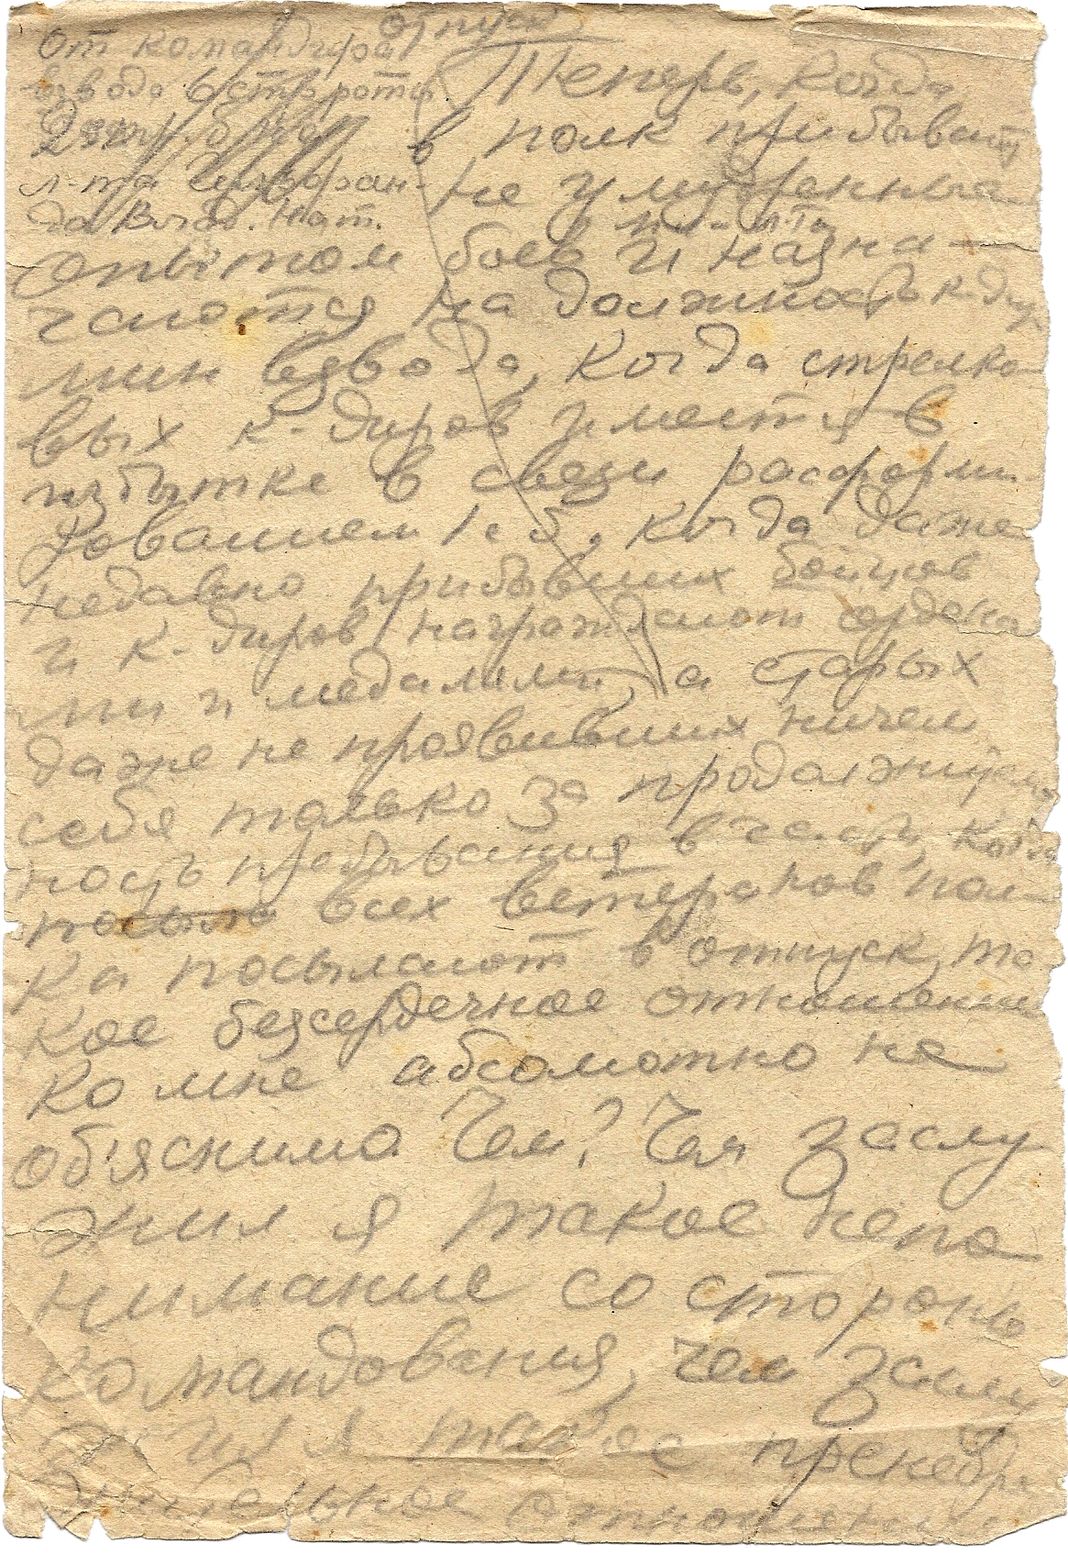 отпуск
От командира
взвода 6 стр роты
л-та Гельфан-
да Влад. Нат.
Теперь, когда
в полк прибывают
не умудренные
мл. л-та
опытом боев и назна-
чаются на должность к-дир
мин взвода, когда стрелко
вых к-диров имеется в
избытке в связи расформи
рованием 1 с.б, когда даже
недавно прибывших бойцов
и к-диров награждают ордена
ми и медалями, а старых
даже не проявивших ничем
себя только за продолжитель
ность пребывания в части, когда
всех ветеранов пол-
ка посылают в отпуск, та
кое безсердечное отношение
ко мне абсолютно не
об'яснимо. Чем? Чем заслу
жил я такое непо
нимание со стороны
командования, чем заслу
жил я такое пренебре
жительное отношение